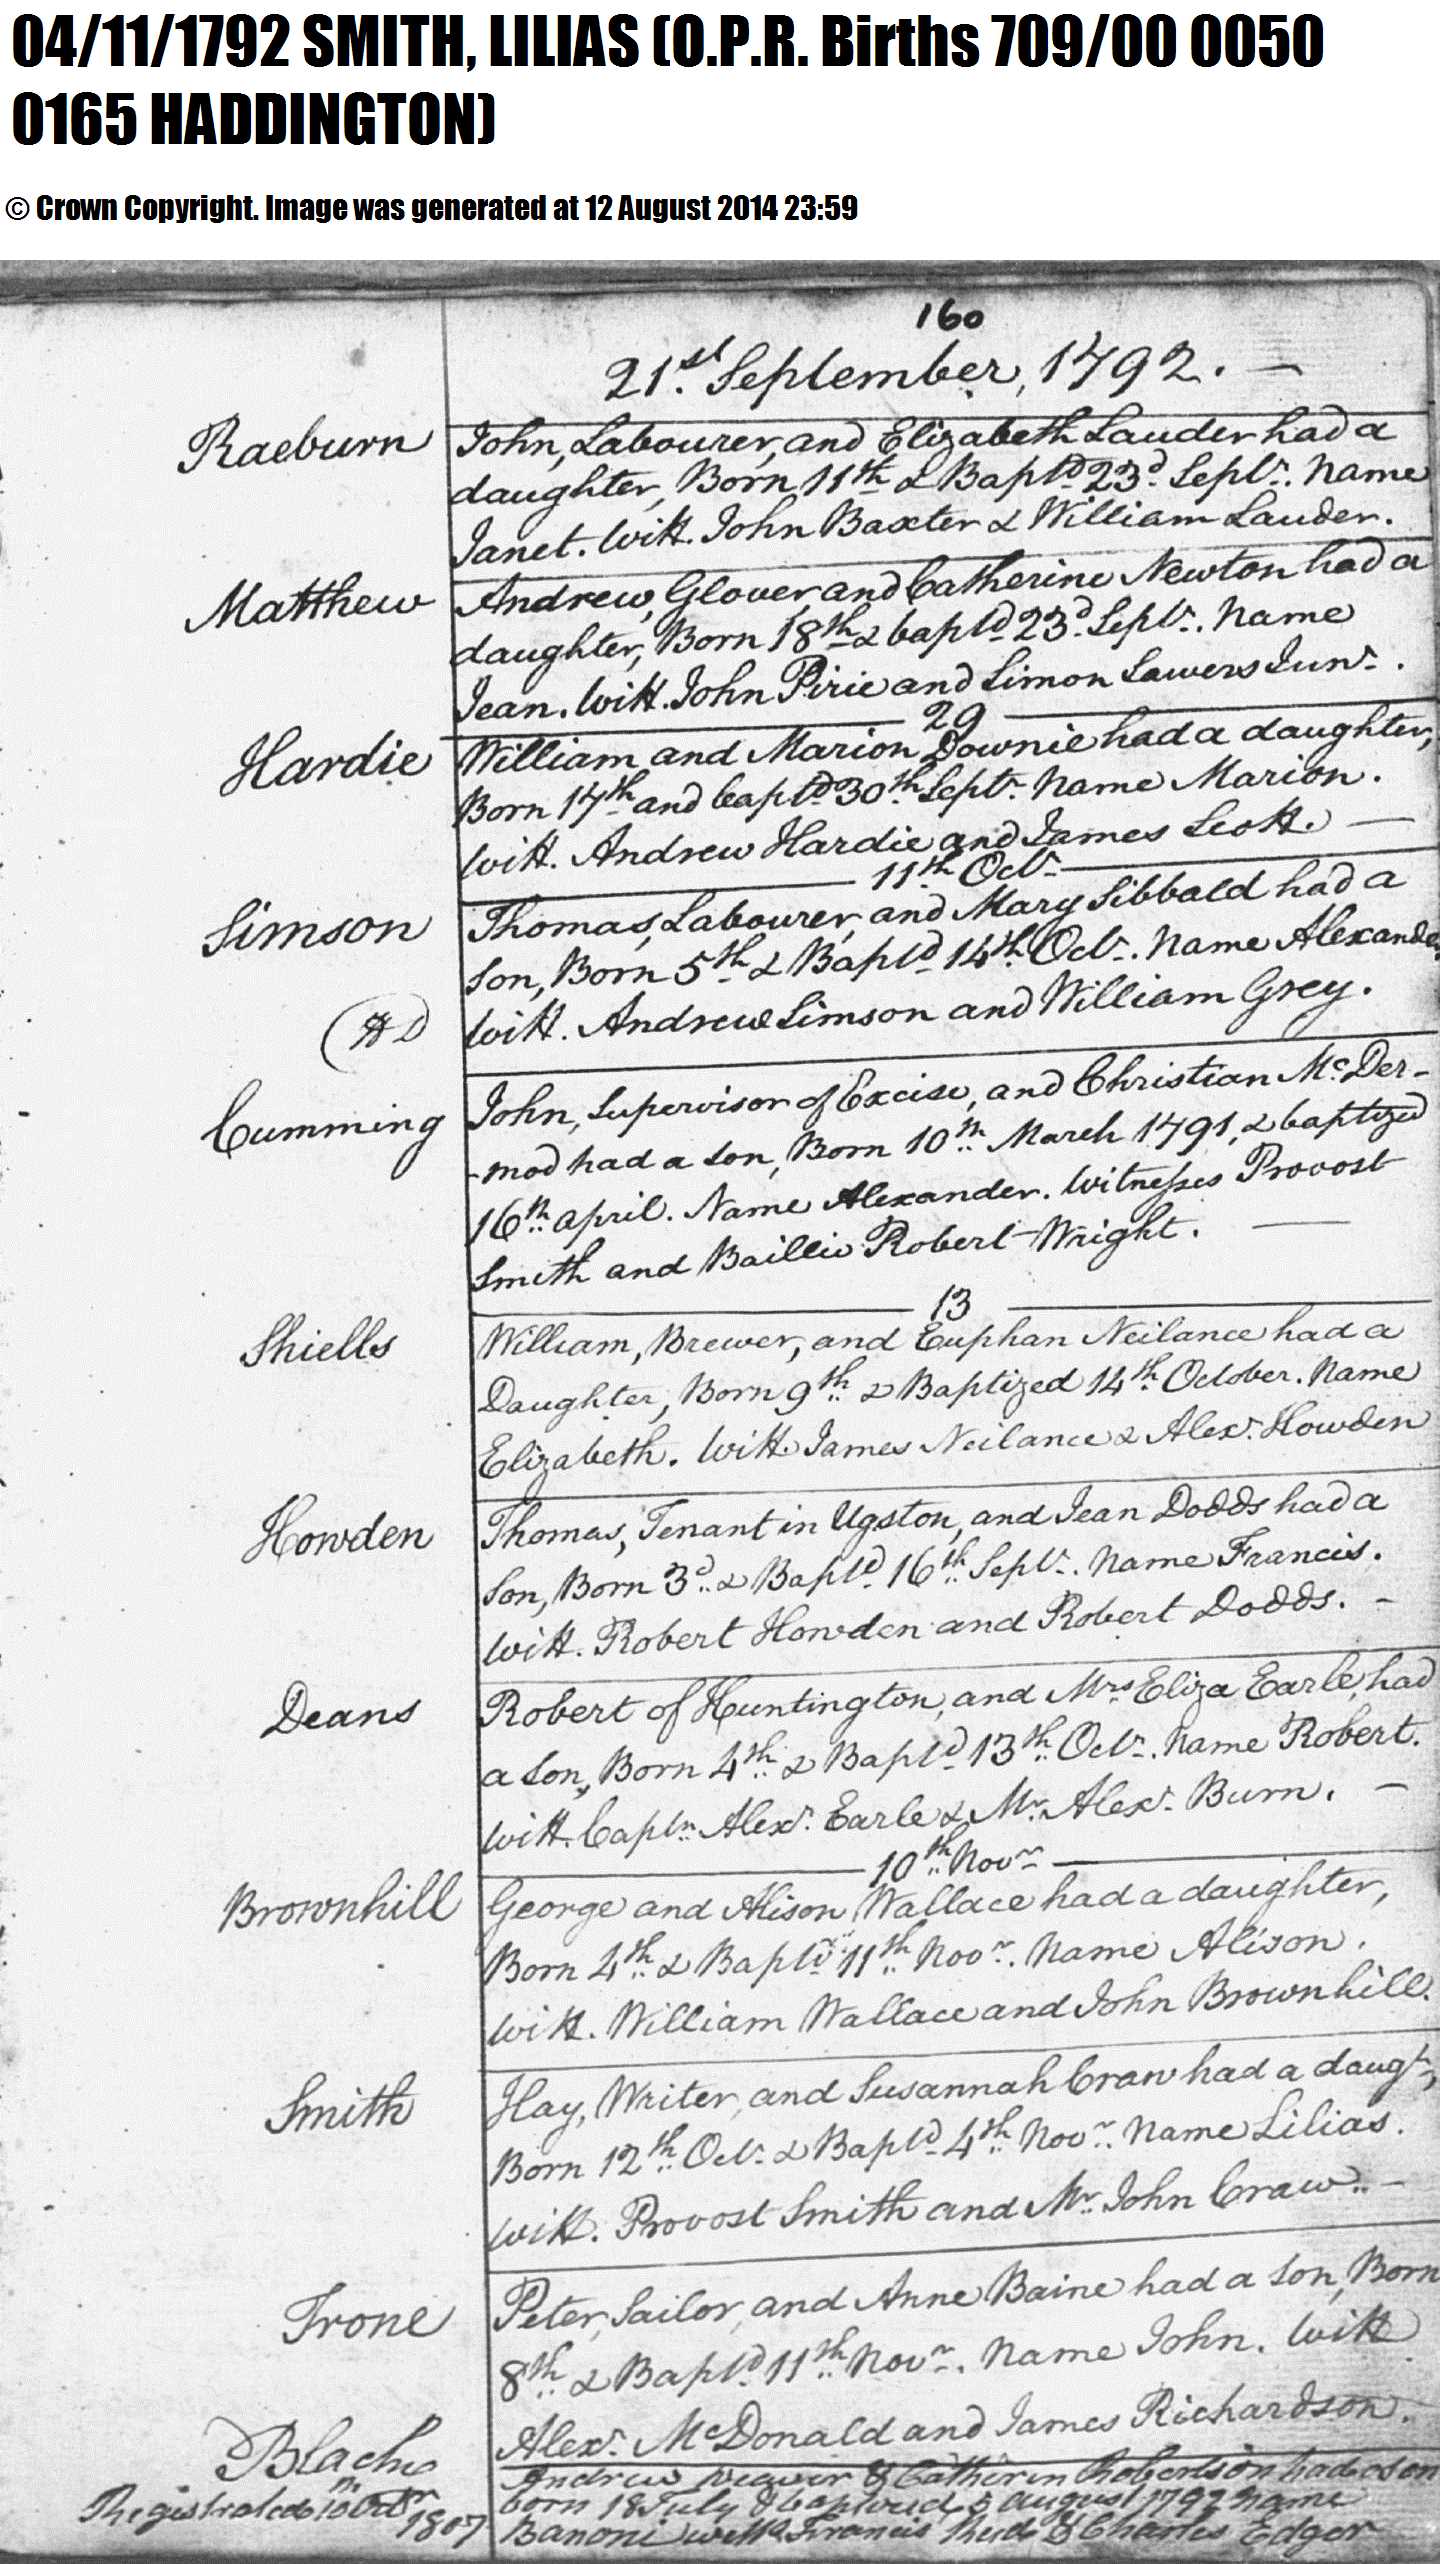 04/11/1792 SMITH, LILIAS (O.P.R. Births 709/00 0050
0165 HADDINGTON)
© Crown Copyright. Image was generated at 12 August 2014 23:59
160
21st September, 1792. —
Raeburn John, Labourer, and Elizabeth Lauder had a
daughter, Born 11th & Baptd 23d Septr. Name
Janet. Witt. John Baxter & William Lauder.
Matthew Andrew, Glover, and Catherine Newton had a
daughter, Born 18th & baptd 23d Septr. Name
Jean. Witt. John Pirie and Simon Sawers Junr.
29
Hardie William and Marion Downie had a daughter,
Born 17th and baptd 30th Septr. Name Marion.
Witt. Andrew Hardie and James Scott. —
11th Octr
Simson Thomas, Labourer, and Mary Sibbald had a
Son, Born 5th & Baptd 14th Octr. Name Alexander.
Witt. Andrew Simson and William Grey.
Cumming John, Supervisor of Excise, and Christian McDer-
-mod had a son, Born 10th March 1791, & baptized
16th april. Name Alexander. Witnesses Provost
Smith and Baillie Robert Wright. —
13
Shiells William, Brewer, and Euphan Neilance had a
Daughter, Born 9th & Baptized 14th October. Name
Elizabeth. Witt. James Neilance & Alexr. Howden
Howden Thomas, Tenant in Ugston, and Jean Dodds had a
Son, Born 3d & Baptd 16th Septr. Name Francis.
Witt. Robert Howden and Robert Dodds. —
Deans Robert of Huntington, and Mrs Eliza Earle, had
a Son, Born 4th & Baptd 13th Octr. Name Robert.
Witt. Captn Alexr. Earle & Mr. Alexr. Burn. —
10th Novr
Brownhill George and Alison Wallace had a daughter,
Born 4th & Baptd 11th Novr. Name Alison.
Witt. William Wallace and John Brownhill.
Smith Hay, Writer, and Susannah Craw had a daugr,
Born 12th Octr & Baptd 4th Novr. Name Lilias.
Witt. Provost Smith and Mr. John Craw. —
Trone Peter, Sailor, and Anne Baine had a Son, Born
8th & Baptd 11th Novr. Name John. Witt
Alexr. McDonald and James Richardson.
Andrew weaver & Catherin Robertson had a son
Registrated 10 Octr born 18 July & baptized 5 august 1792 Name
1807 witts Francis & Charles Edger